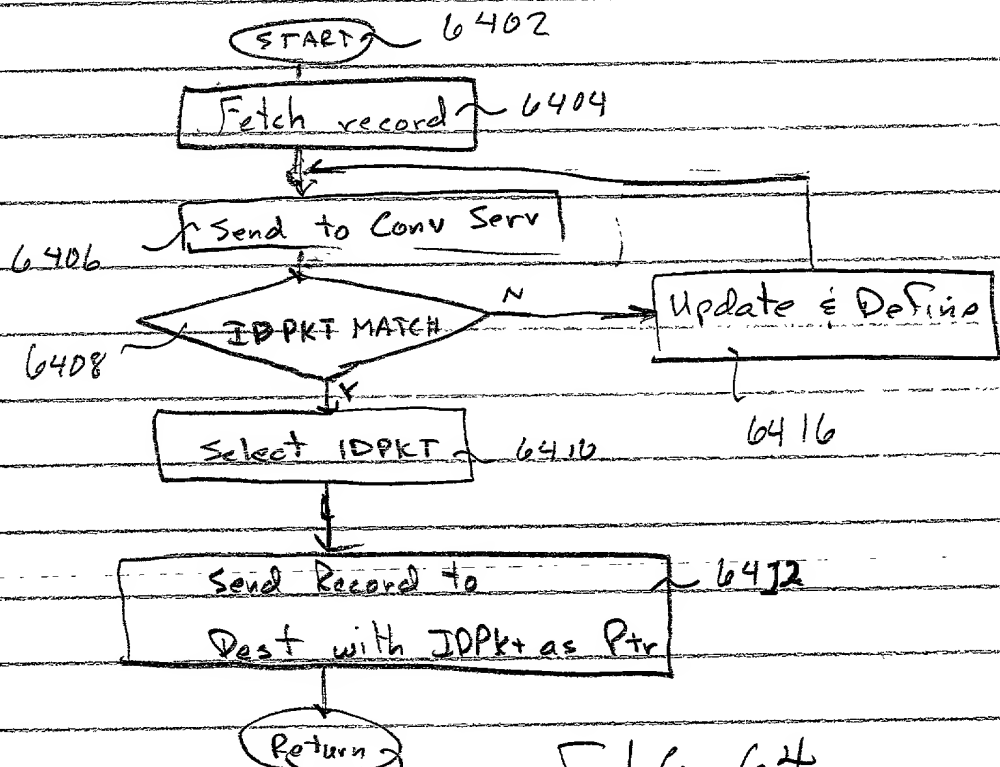 START 6402
Fetch record 6404
Send to Conv Serv
6406
N
IDPKT MATCH
Update & Define
6408
Y
6416
Select IDPKT 6410
Send Record to 6412
Dest with IDPkt as Ptr
Return
FIG. 64